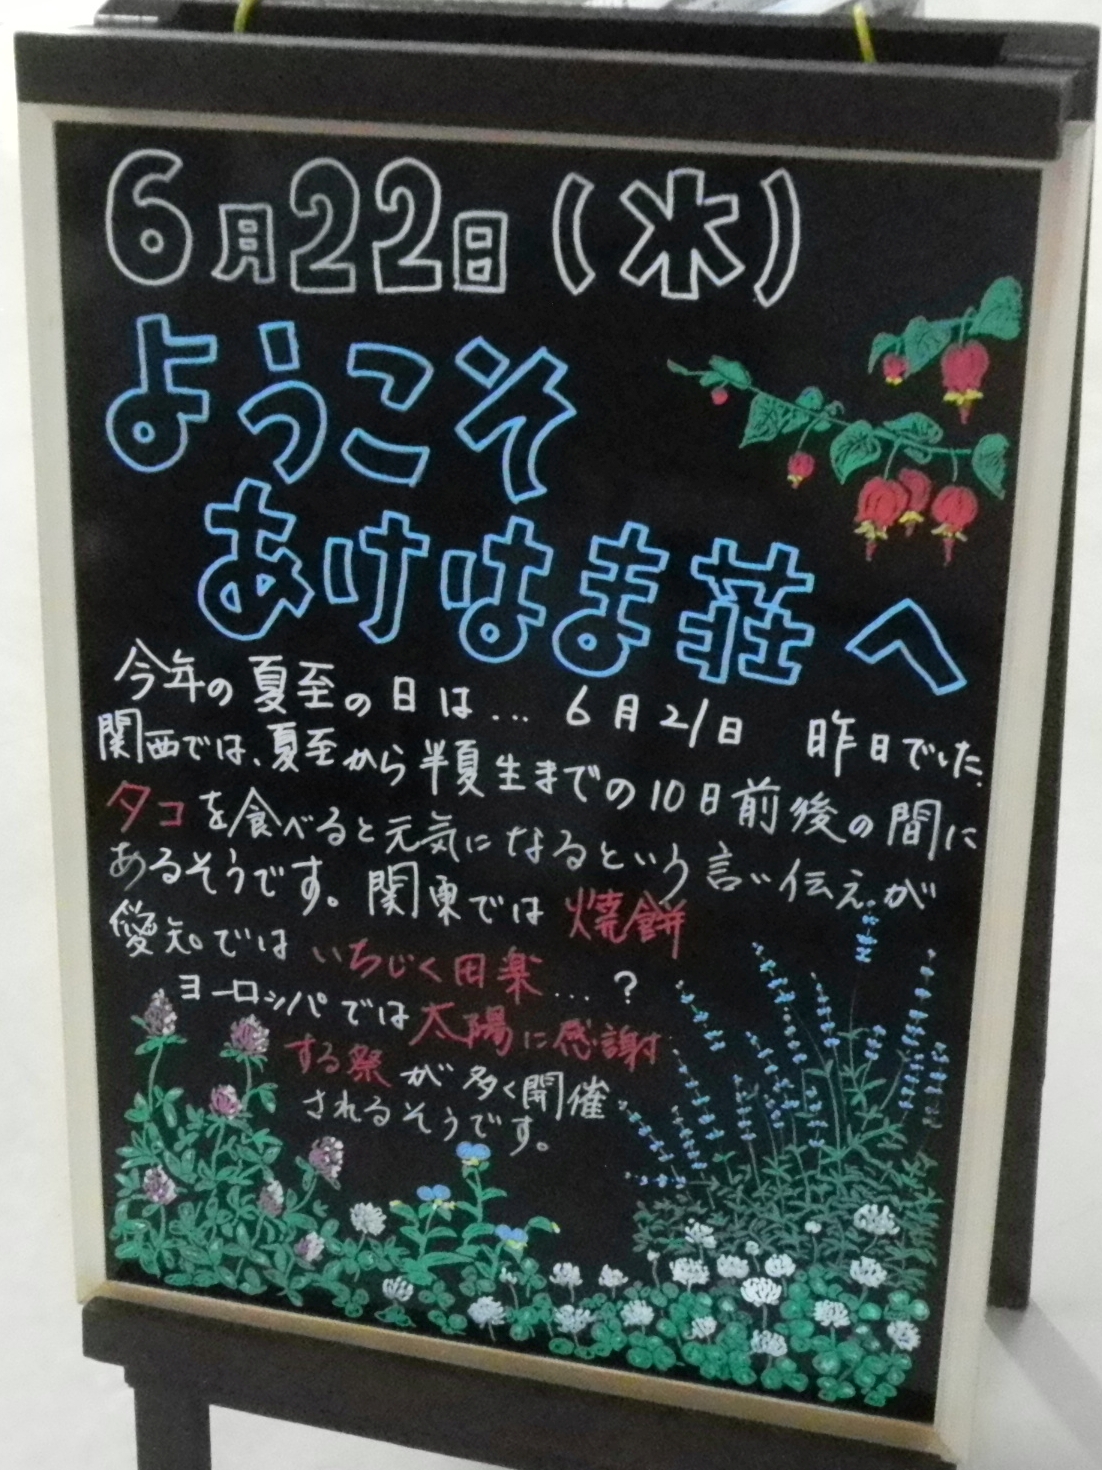 6月22日（水）
ようこそ
あけはま荘へ
今年の夏至の日は… 6月21日 昨日でした。
関西では、夏至から半夏生までの10日前後の間に
タコを食べると元気になるという言い伝えが
あるそうです。関東では焼餅
愛知では いちじく田楽…？
ヨーロッパでは太陽に感謝
する祭が多く開催
されるそうです。